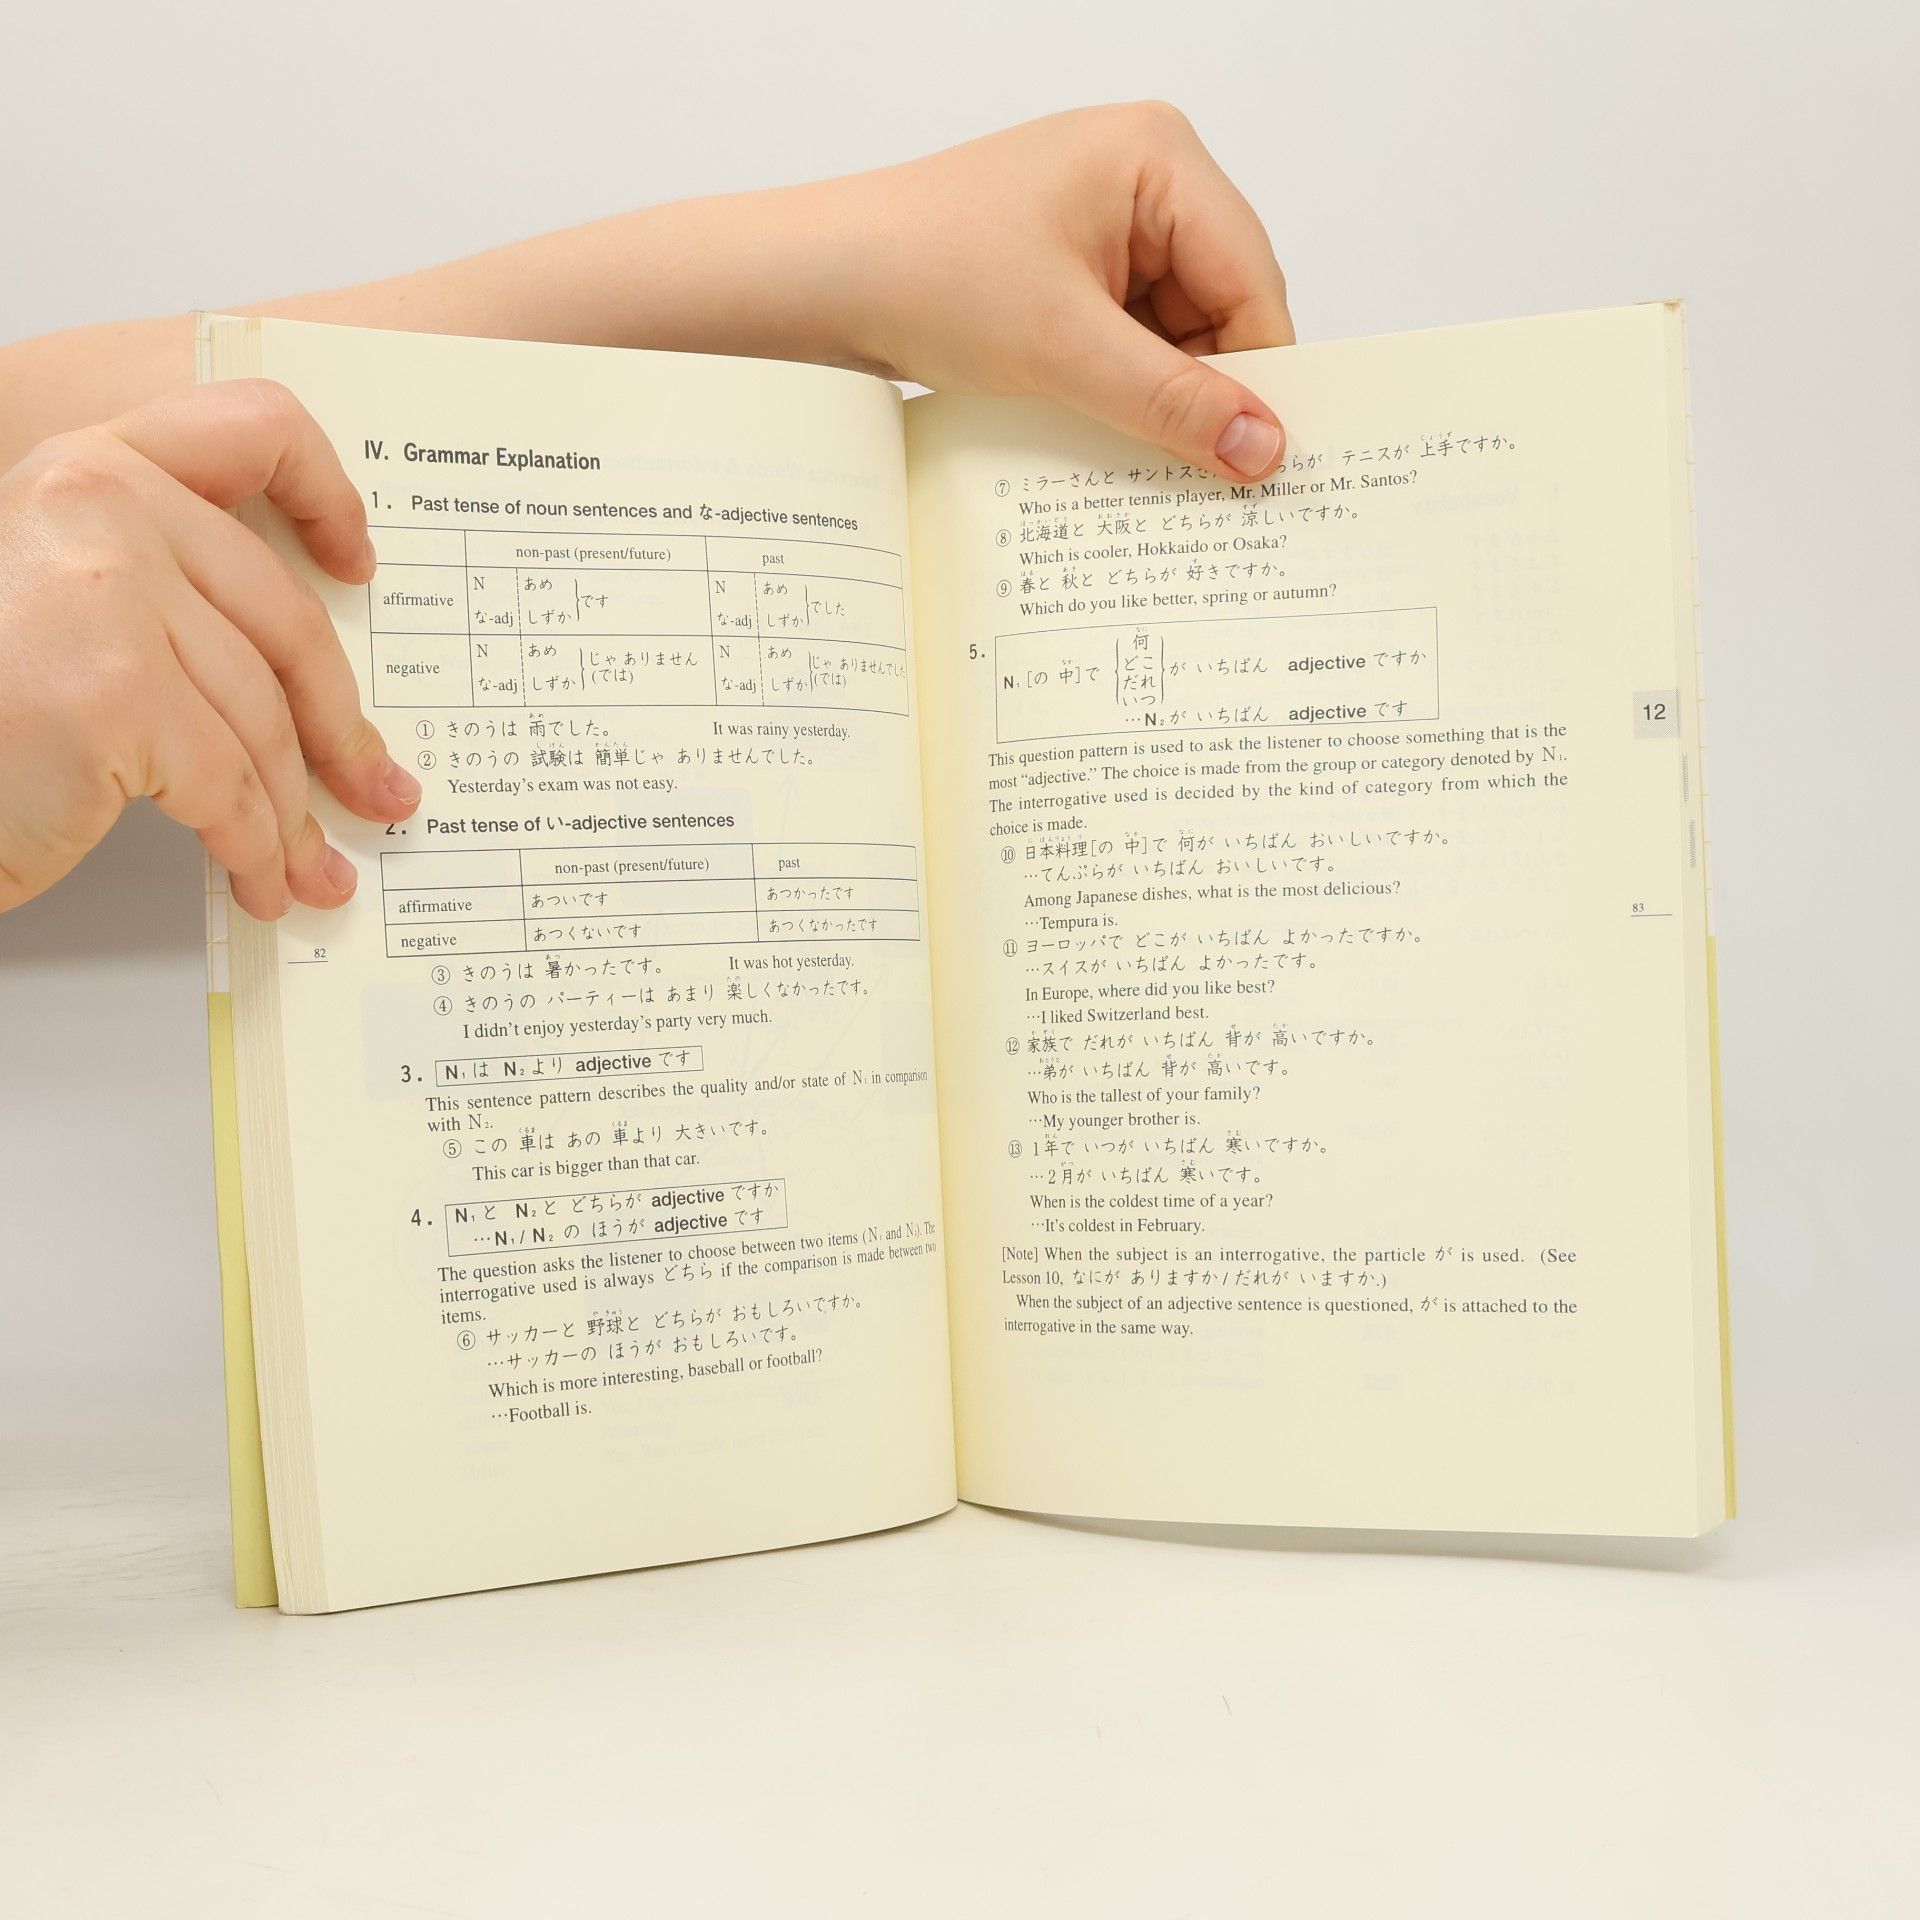 IV. Grammar Explanation
1. Past tense of noun sentences and な-adjective sentences
non-past (present/future) past
affirmative N あめ な-adj しずか です N あめ な-adj しずか でした
negative N あめ な-adj しずか じゃ ありません (では) N あめ な-adj しずか じゃ ありませんでした (では)
① きのうは 雨でした。 It was rainy yesterday.
② きのうの 試験は 簡単じゃ ありませんでした。
Yesterday's exam was not easy.
2. Past tense of い-adjective sentences
non-past (present/future) past
affirmative あついです あつかったです
negative あつくないです あつくなかったです
③ きのうは 暑かったです。 It was hot yesterday.
④ きのうの パーティーは あまり 楽しくなかったです。
I didn't enjoy yesterday's party very much.
3. N₁は N₂より adjective です
This sentence pattern describes the quality and/or state of N₁ in comparison
with N₂.
⑤ この 車は あの 車より 大きいです。
This car is bigger than that car.
4. N₁と N₂と どちらが adjective ですか
…N₁/N₂の ほうが adjective です
The question asks the listener to choose between two items (N₁ and N₂). The
interrogative used is always どちら if the comparison is made between two
items.
⑥ サッカーと 野球と どちらが おもしろいですか。
…サッカーの ほうが おもしろいです。
Which is more interesting, baseball or football?
…Football is.
82
⑦ ミラーさんと サントスさ らが テニスが 上手ですか。
Who is a better tennis player, Mr. Miller or Mr. Santos?
⑧ 北海道と 大阪と どちらが 涼しいですか。
Which is cooler, Hokkaido or Osaka?
⑨ 春と 秋と どちらが 好きですか。
Which do you like better, spring or autumn?
5. N₁[の 中]で 何 どこ だれ いつ が いちばん adjective ですか
…N₂が いちばん adjective です
This question pattern is used to ask the listener to choose something that is the
most “adjective.” The choice is made from the group or category denoted by N₁.
The interrogative used is decided by the kind of category from which the
choice is made.
⑩ 日本料理[の 中]で 何が いちばん おいしいですか。
…てんぷらが いちばん おいしいです。
Among Japanese dishes, what is the most delicious?
…Tempura is.
⑪ ヨーロッパで どこが いちばん よかったですか。
…スイスが いちばん よかったです。
In Europe, where did you like best?
…I liked Switzerland best.
⑫ 家族で だれが いちばん 背が 高いですか。
…弟が いちばん 背が 高いです。
Who is the tallest of your family?
…My younger brother is.
⑬ 1年で いつが いちばん 寒いですか。
…2月が いちばん 寒いです。
When is the coldest time of a year?
…It's coldest in February.
[Note] When the subject is an interrogative, the particle が is used. (See
Lesson 10, なにが ありますか/だれが いますか.)
When the subject of an adjective sentence is questioned, が is attached to the
interrogative in the same way.
12
83